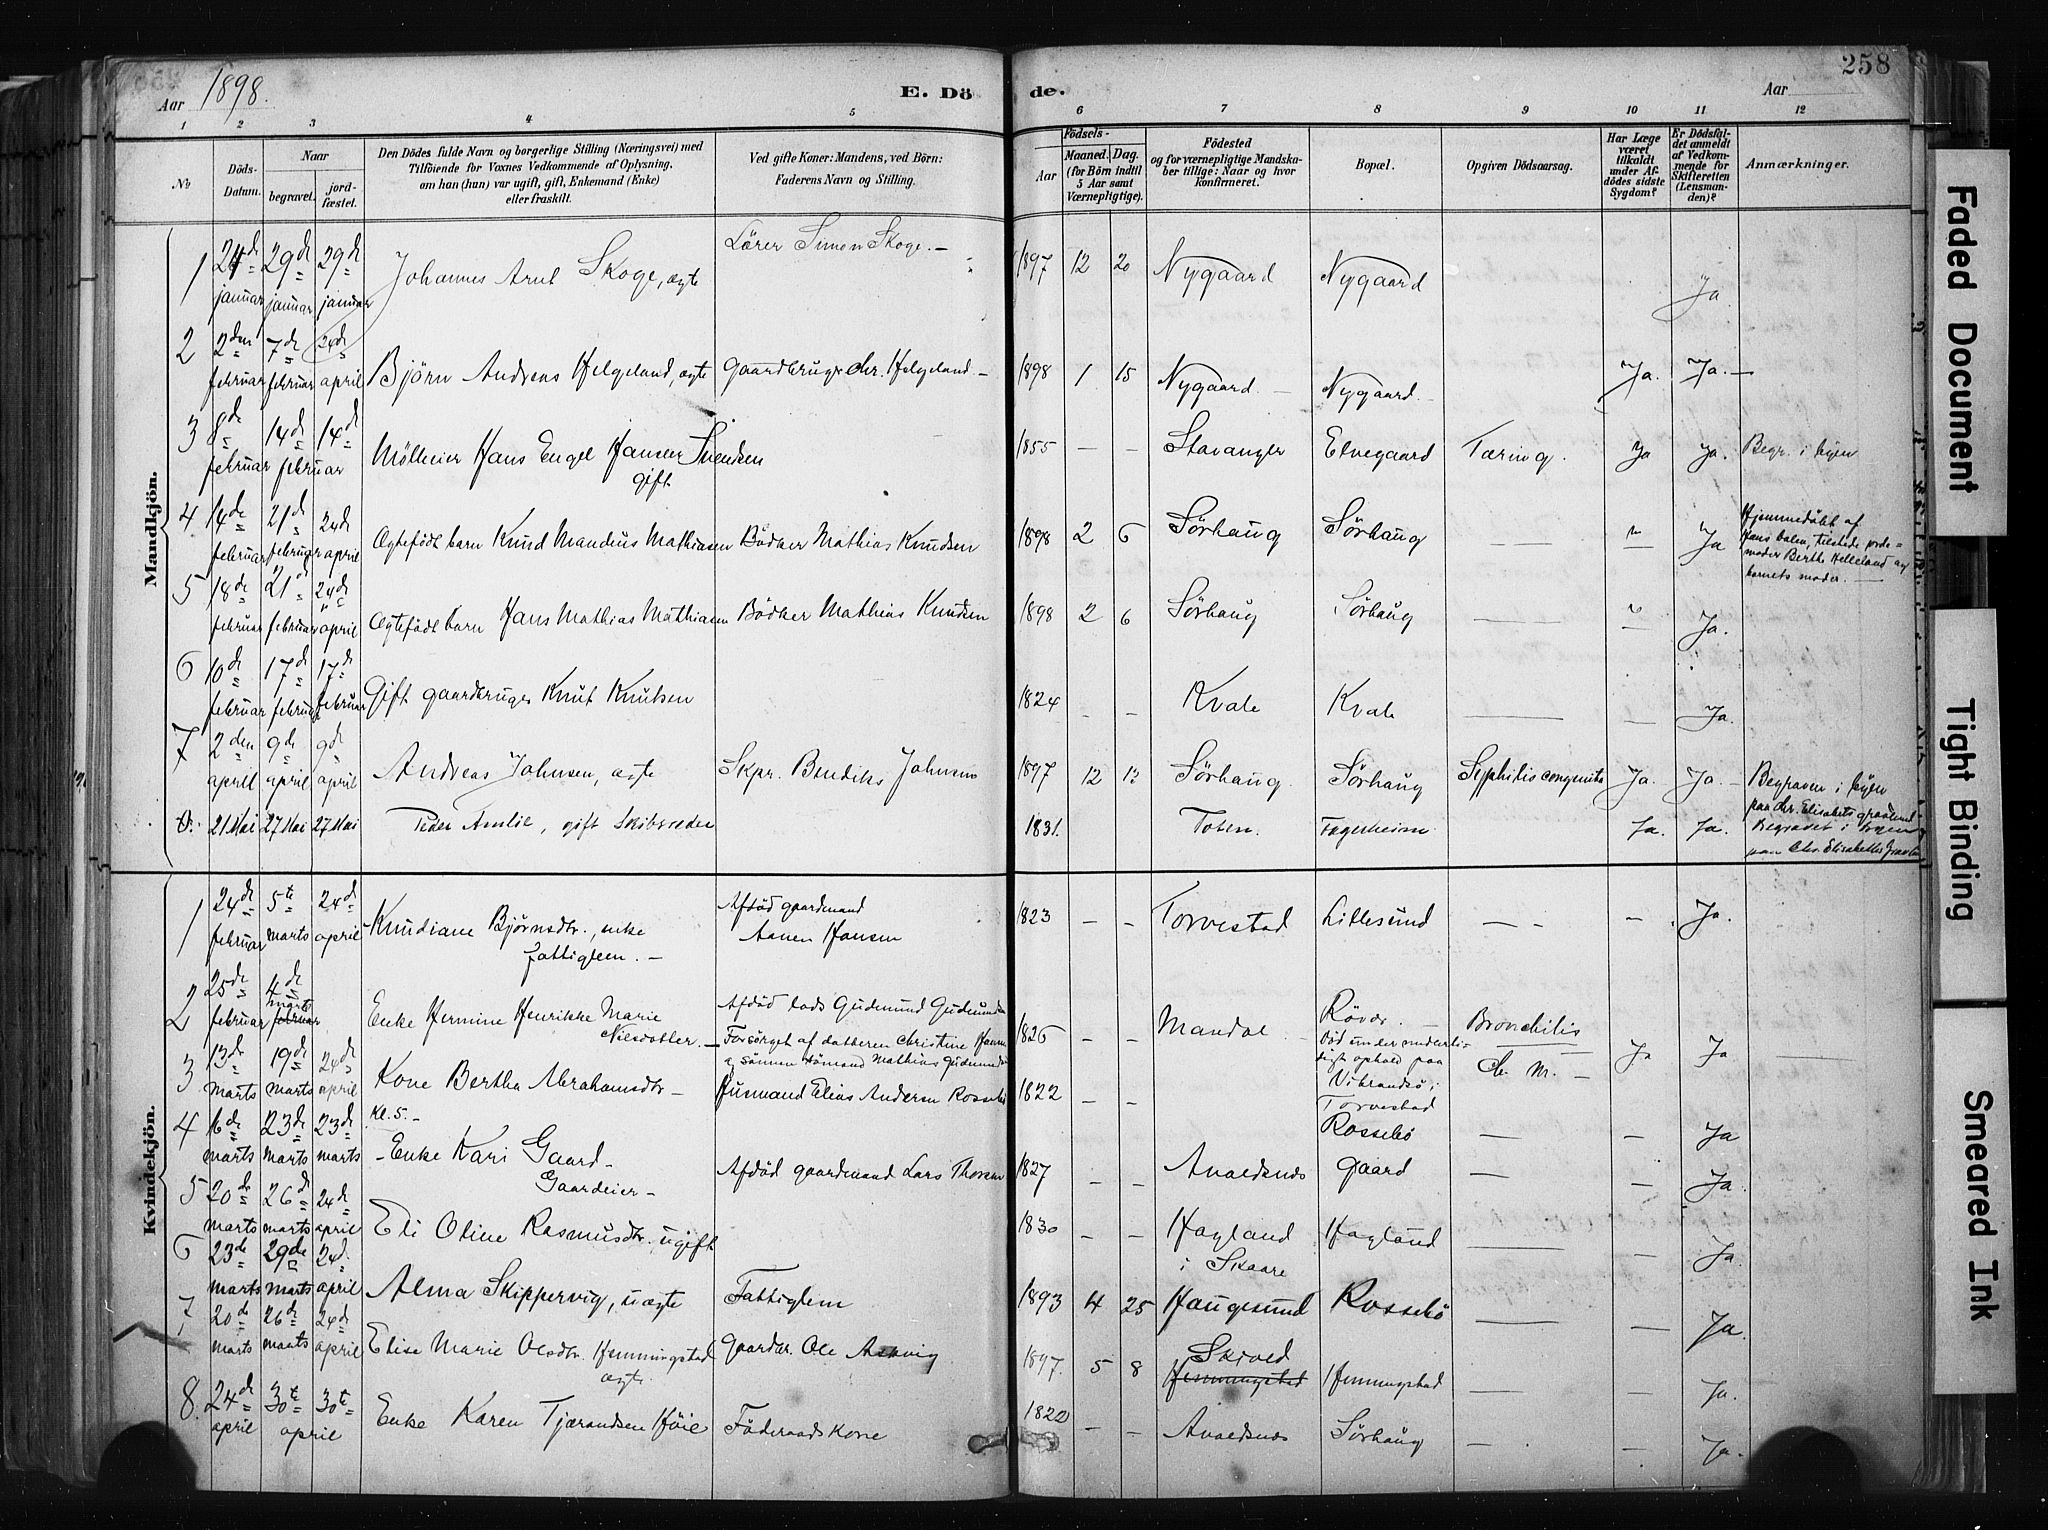 258
Aar 1898.
E. Dö
de.
Aar
1 2 3 4 5 6 7 8 9 10 11 12
No
Döds-
Datum.
Naar
begravet.
jord-
fæstet.
Den Dödes fulde Navn og borgerlige Stilling (Næringsvei) med
Tilföiende for Voxnes Vedkommende af Oplysning,
om han (hun) var ugift, gift, Enkemand (Enke)
eller fraskilt.
Ved gifte Koner: Mandens, ved Börn:
Faderens Navn og Stilling.
Födsels-
Aar
Maaned. Dag.
(for Börn indtil
5 Aar samt
Værnepligtige).
Födested
og for værnepligtige Mandska-
ber tillige: Naar og hvor
konfirmeret.
Bopæl.
Opgiven Dödsaarsag.
Har Læge
været
tilkaldt
under Af-
dödes sidste
Sygdom?
Er Dödsfal-
det anmeldt
af Vedkom-
mende for
Skifteretten
(Lensman-
den)?
Anmærkninger.
Mandkjön.
1 24de januar 29de januar 29de januar Johannes Arnt Skoge, ægte Lærer Simon Skoge. 1897 12 20 Nygaard Nygaard Ja
2 2den februar 7de februar 24de april Björn Andreas Helgeland, ægte Gaardbruger Chr. Helgeland 1898 1 15 Nygaard Nygaard Ja. Ja.
3 8de februar 14de februar 14de Mölleier Hans Engel Hansen Svendsen gift 1855 Stavanger Elvegaard Tæring. Ja Ja. Begr. i byen
4 14de februar 21de februar 24de april Ægtefödt barn Knud Mandius Mathiasen Bödker Mathias Knudsen 1898 2 6 Sörhaug Sörhaug Ja Hjemmedöbt af
Hans Dalen, tilstede jorde=
moder Berthe Helleland og
barnets moder.
5 18de februar 21de februar 24de april Ægtefödt barn Hans Mathias Mathiasen Bödker Mathias Knudsen 1898 2 6 Sörhaug Sörhaug Ja.
6 10de februar 17de februar 17de februar Gift gaardbruger Knut Knutsen 1824 Kvale Kvale Ja.
7 2den april 9de april 9de april Andreas Johnsen, ægte Skpr. Bendiks Johnsen 1897 12 13 Sörhaug. Sörhaug Syphilis congenita Ja. Ja. Begraven i byen
paa chr. Elisabets gravlund
8. 21 Mai 27 Mai 27 Mai Peder Amlie, gift Skibsreder 1831. Toten. Fagerheim Ja. Ja. Begravet i byen
paa Chr. Elisabeths Gravlund
Kvindekjön.
1 24de februar 5te marts 24de april Knudiane Björnsdtr., enke
fattiglem. Afdöd gaardmand
Aanen Hansen 1823 Torvestad Lillesund Ja.
2 25de februar 4de marts Enke Hermine Henrikke Marie
Nilsdatter. Afdöd lods Gudmund Gudmundsen
Forsörget af datteren Christine Hansen
& sönnen sömand Mathias Gudmundsen 1826 Mandal Rövær.
Död under midlerti-
digt ophold paa
Vibrandsö i
Torvestad Bronchitis
Ch. M. Ja Ja
3 13de marts 19de marts 24de april Kone Bertha Abrahamsdtr
Kl. 5. Husmand Elias Andersen Rossebö 1822 Rossebö Ja
4 16de marts 23de marts 23de marts Enke Kari Gaard
Gaardeier Afdöd gaardmand Lars Thorsen 1827 Avaldsnæs Gaard Ja.
5 20de marts 26de marts 24de april Eli Oline Rasmusdtr. ugift 1830 Hagland
i Skaare Hagland Ja.
6 23de marts 29de marts 24de april Alma Skippervig, uægte Fattiglem 1893 4 25 Haugesund Rossebö Ja.
7 20de marts 26de marts 24de april Elise Marie Olsdtr. Hemmingstad
ægte. Gaardbr. Ole 1897. 5 8 Skjold
Hemmingstad Hemmingstad Ja.
8. 24de april 30te april 30te Enke Karen Tjærandsen Höie Föderaadskone 1822 Avaldsnæs Sörhaug Ja.
Faded Document
Tight Binding
Smeared Ink